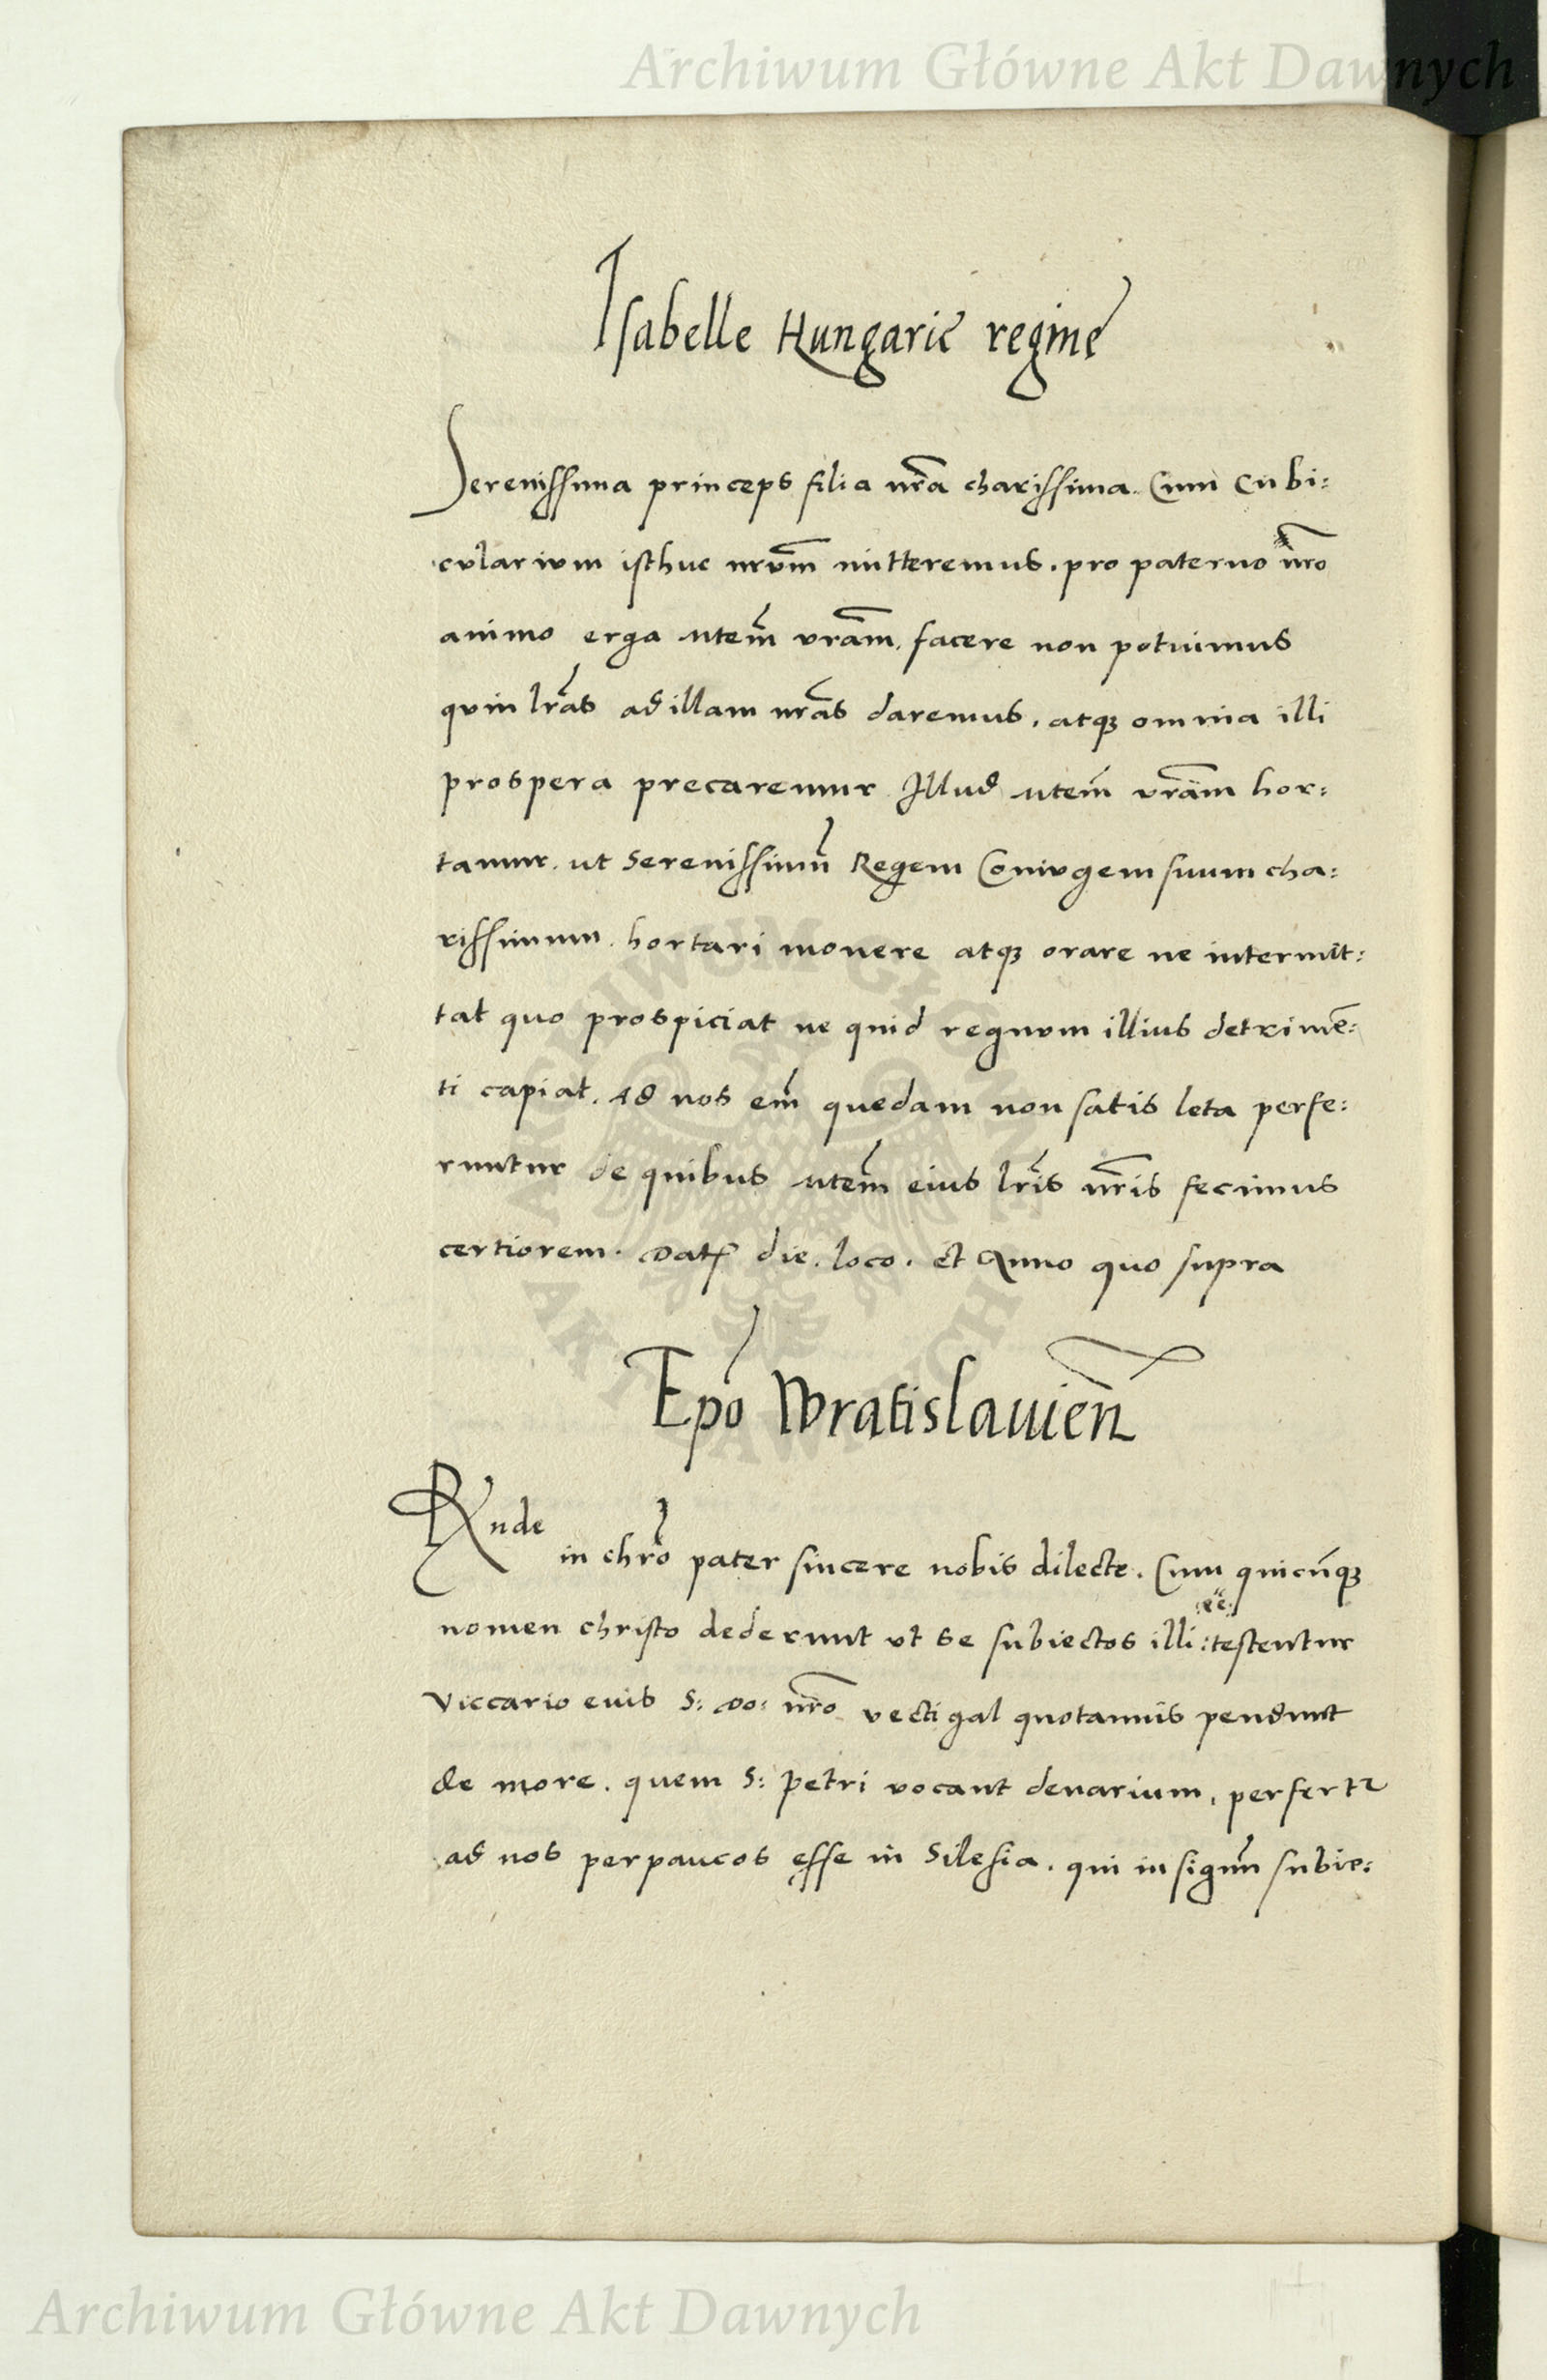 Archiwum Główne Akt Dawnych
Isabelle Hungarie regine
Serenissima princeps filia nr̃a charissima. Cum Cubi:
cularium isthuc nrũm mitteremus. pro paterno nr̃o
animo erga Mtem̃ vrãm. facere non potuimus
quin lrãs ad illam nrãs daremus. atqꝫ omnia illi
prospera precaremur Illud Mtem̃ vrãm hor:
tamur. ut Serenissimũ Regem Coniugem suum cha:
rissimum. hortari monere atqꝫ orare ne intermit:
tat quo prospiciat ne quid regnum illius detrimẽ:
ti capiat. Ad nos em̃ quedam non satis leta perfe:
runtur de quibus Mtem̃ eius lrĩs nrĩs fecimus
certiorem. Datꝭ die. loco. et Anno quo supra
Epõ Wratislauieñ
Rnde in chrõ pater sincere nobis dilecte. Cum quicũqꝫ
nomen christo dederunt ut se subiectos illi :ẽẽ: testentur
Viccario euis S: Do: nrõ vectigal quotannis pendunt
de more. quem S: Petri vocant denarium, perfertꝛ
ad nos perpaucos esse in Silesia. qui in signũ subie:
ARCHIWUM GŁÓWNE AKT DAWNYCH
Archiwum Główne Akt Dawnych